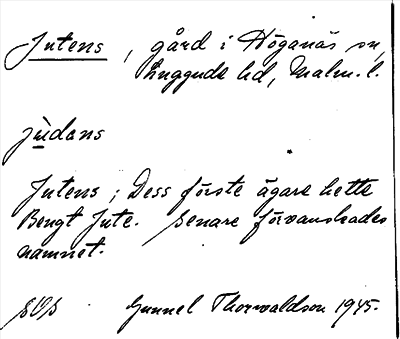 Jutens, gård i Höganäs sn,
Luggude hd, Malm. l.
jùdans
Jutens; Dess förste ägare hette
Bengt Jute. Senare förvanskades
namnet.
SOS Gunnel Thorwaldson 1945.